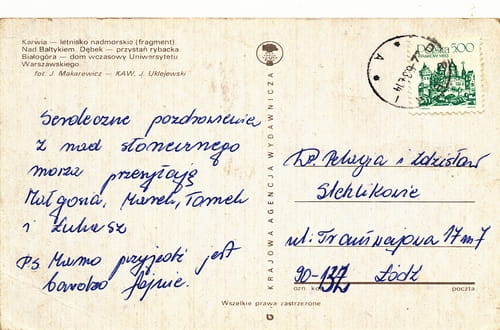 Karwia — letnisko nadmorskie (fragment)
Nad Bałtykiem. Dębek — przystań rybacka
Białogóra — dom wczasowy Uniwersytetu
Warszawskiego
fot. J. Makarewicz — KAW, J. Uklejewski
Polska 5.00
KRAJOWA AGENCJA WYDAWNICZA
Serdeczne pozdrowienia
z nad słonecznego
morza przesyłają
Małgosia, Marek, Tomek
i Łukasz
Ps Mamo przyjedź jest
bardzo fajnie.
i Zdzisław
ul. Tramwajowa 17 m 7
90-132 Łódź
ozn. kod poczta
Wszelkie prawa zastrzeżone